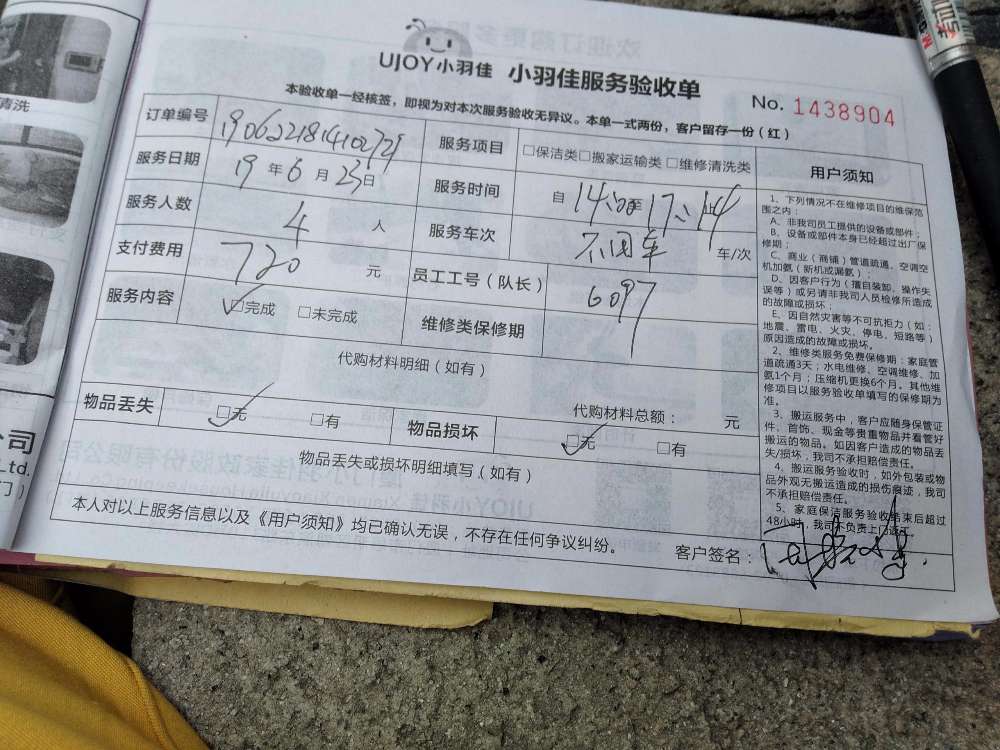 UJOY小羽佳 小羽佳服务验收单
No. 1438904
本验收单一经核签，即视为对本次服务验收无异议。本单一式两份，客户留存一份（红）
订单编号 服务项目 □保洁类□搬家运输类□维修清洗类
服务日期 19年6月23日 服务时间 自14:
服务人数 4人 服务车次 不用车 车/次
支付费用 720元 员工工号（队长） 6097
服务内容 ☑完成 □未完成 维修类保修期
代购材料明细（如有）
代购材料总额： 元
物品丢失 ☑无 □有 物品损坏 ☑无 □有
物品丢失或损坏明细填写（如有）
本人对以上服务信息以及《用户须知》均已确认无误，不存在任何争议纠纷。
客户签名：
用户须知
1、下列情况不在维修项目的维保范
围之内：
A、非我司员工提供的设备或部件；
B、设备或部件本身已经超过出厂保
修期；
C、商业（商铺）管道疏通、空调空
机加氨（新机或漏氨）；
D、因客户行为（擅自装卸、操作失
误等）或另请非我司人员检修所造成
的故障或损坏；
E、因自然灾害等不可抗拒力（如：
地震、雷电、火灾、停电、短路等）
原因造成的故障或损坏。
2、维修类服务免费保修期：家庭管
道疏通3天；水电维修、空调维修、加
氨1个月；压缩机更换6个月。其他维
修项目以服务验收单填写的保修期为
准。
3、搬运服务中，客户应随身保管证
件、首饰、现金等贵重物品并看管好
搬运的物品。如因客户造成的物品丢
失/损坏，我司不承担赔偿责任。
4、搬运服务验收时，如外包装或物
品外观无搬运造成的损伤痕迹，我司
不承担赔偿责任。
5、家庭保洁服务验收结束后超过
48小时，我司不负责上门返工。
清洗
公司
Ltd.
门）